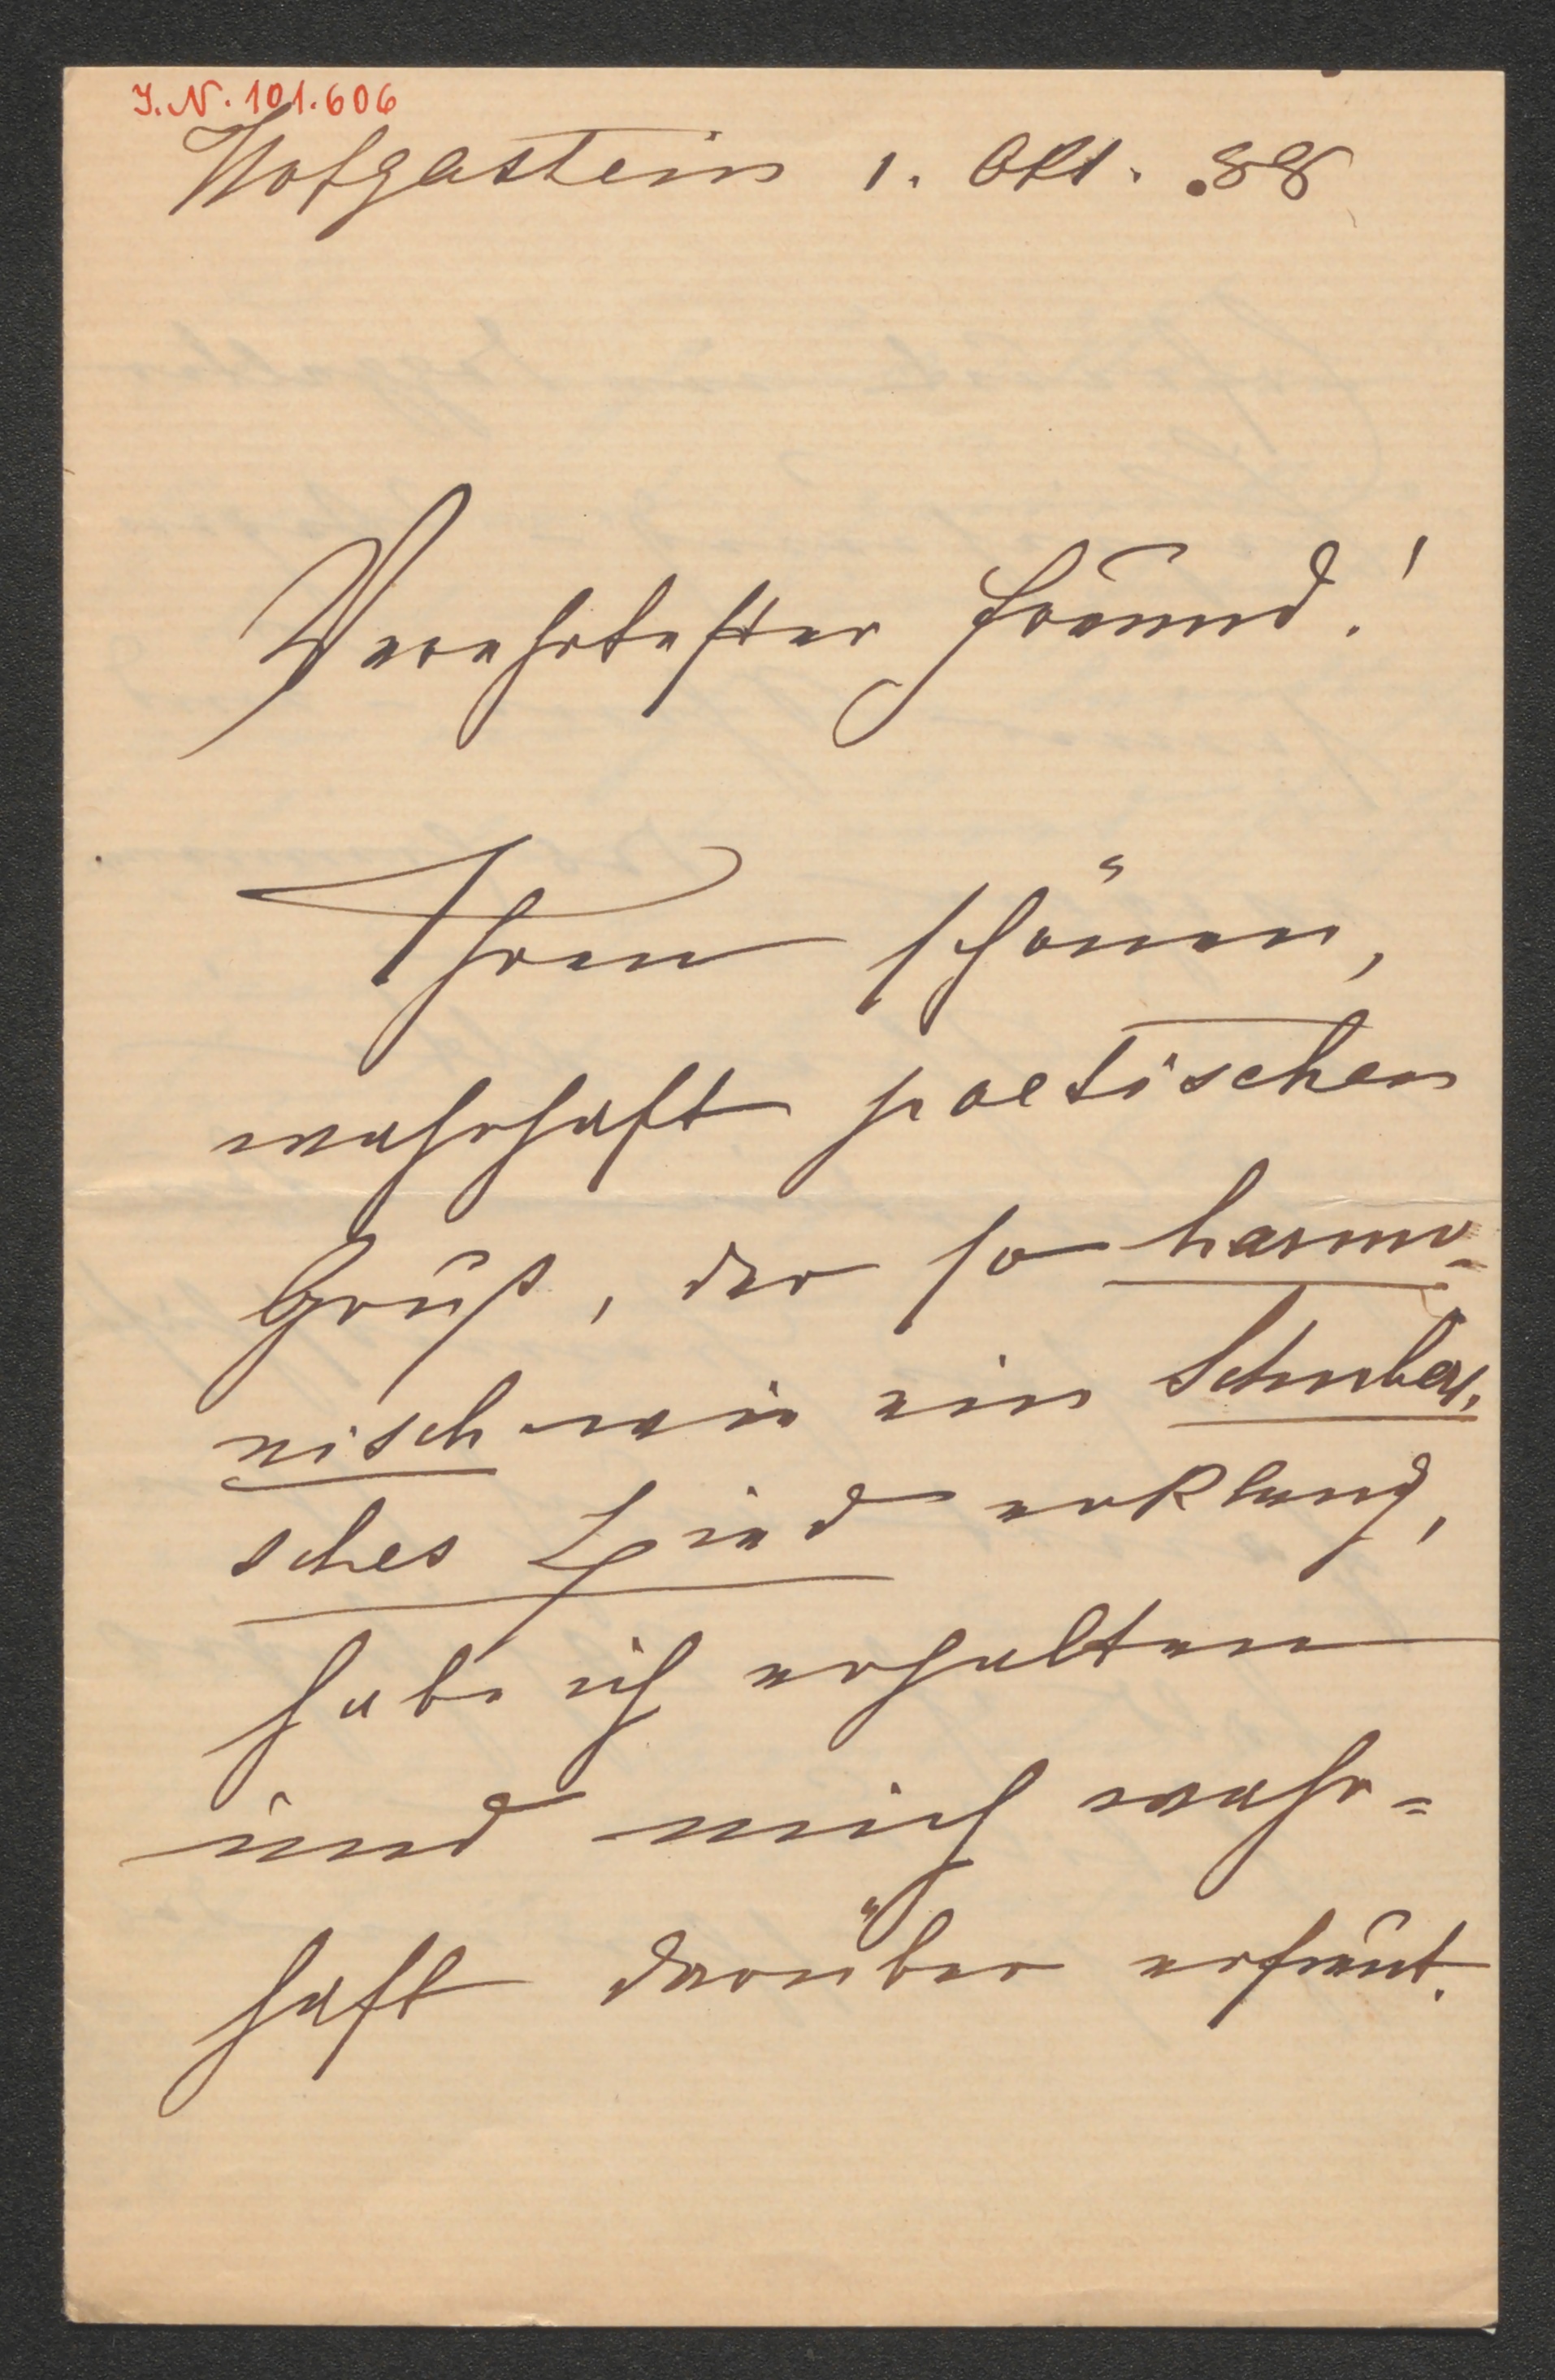 I.N. 101.606
Hofgastein 1. Okt. 88
Verehrtester Freund!
Ihren schönen,
wahrhaft poetischen
Gruß, der so harmo-
nisch wie ein Schubert-
sches Lied erklang,
habe ich erhalten
und mich wahr=
haft darüber erfreut.